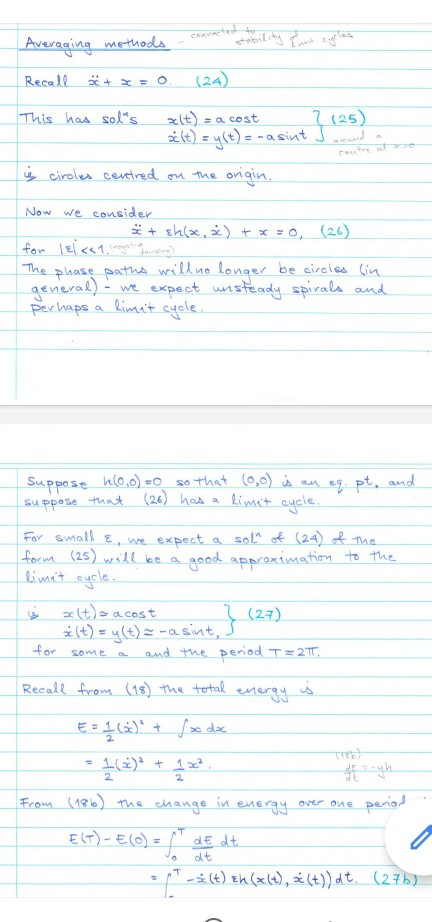 Averaging methods - connected to
stability of limit cycles
Recall ẍ + x = 0. (24)
This has solⁿs x(t) = a cost } (25)
ẋ(t) = y(t) = -a sint around a
centre at x=0
ie circles centred on the origin.
Now we consider
ẍ + εh(x, ẋ) + x = 0, (26)
for |ε| << 1. (negative damping)
The phase paths will no longer be circles (in
general) - we expect unsteady spirals and
perhaps a limit cycle.
Suppose h(0,0) = 0 so that (0,0) is an eq. pt, and
suppose that (26) has a limit cycle.
For small ε, we expect a solⁿ of (24) of the
form (25) will be a good approximation to the
limit cycle.
ie x(t) ≃ a cost } (27)
ẋ(t) = y(t) ≃ -a sint,
for some a and the period T = 2π.
Recall from (18) the total energy is
E = 1/2 (ẋ)² + ∫x dx
= 1/2 (ẋ)² + 1/2 x².
(18b)
dE/dt = -yh
From (18b) the change in energy over one period
E(T) - E(0) = ∫₀ᵀ dE/dt dt
= ∫₀ᵀ -ẋ(t) εh(x(t), ẋ(t)) dt. (27b)